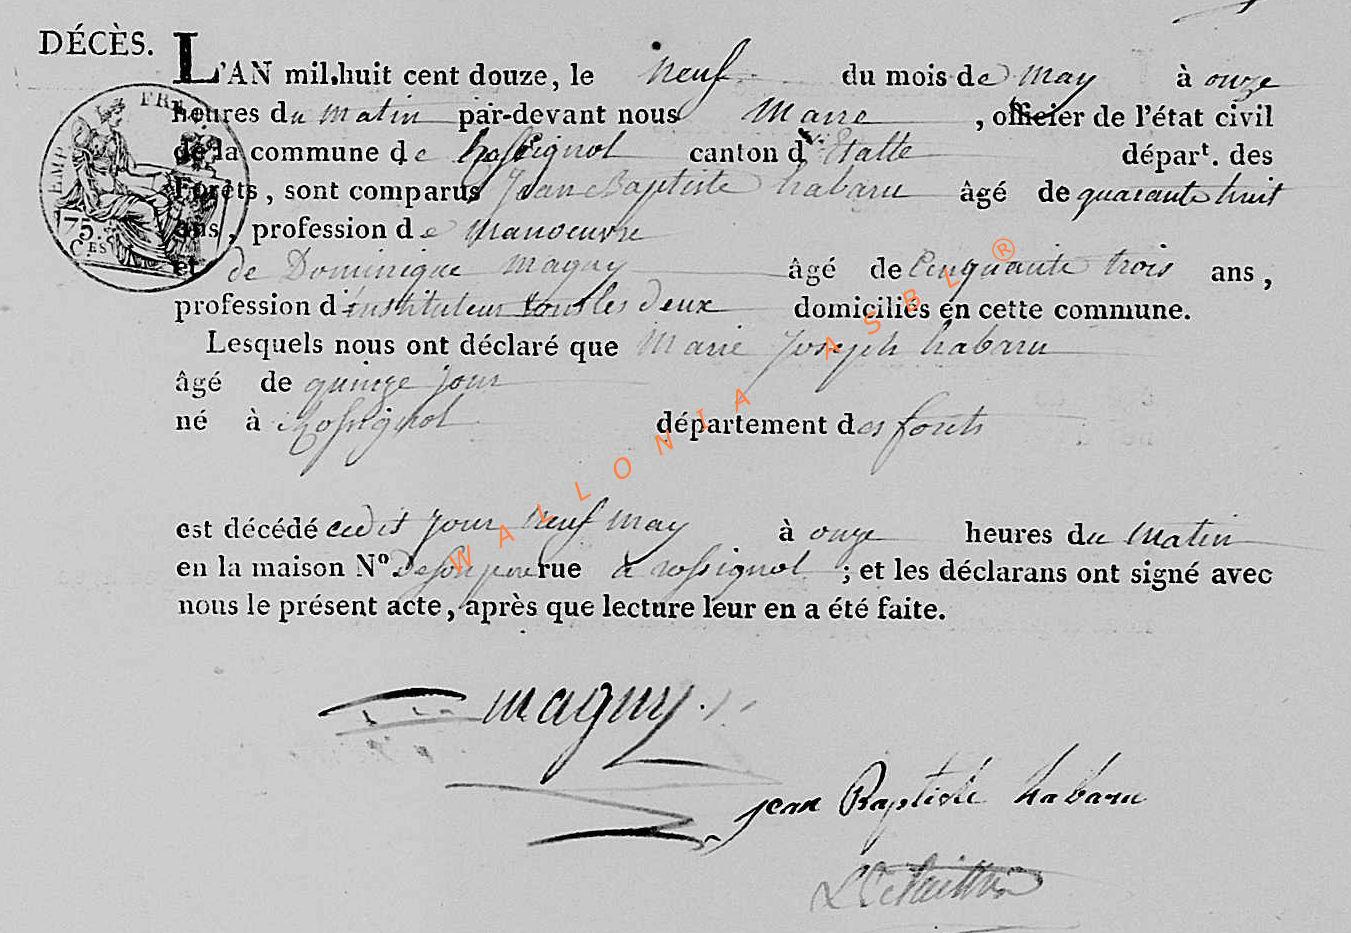 DÉCÈS. L'AN mil huit cent douze, le neuf du mois de may à onze
heures du matin par-devant nous Maire, officier de l'état civil
de la commune de Rossignol canton d'Etalle départ. des
Forêts, sont comparus Jean Baptiste habaru âgé de quarante huit
ans, profession de manoeuvre
et de Dominique magny âgé de Cinquante trois ans,
profession d'instituteur tous les deux domiciliés en cette commune.
Lesquels nous ont déclaré que Marie Joseph habaru
âgé de quinze jour
né à Rossignol département des forets
est décédé cedit jour neuf may à onze heures du matin
en la maison Nº De son pere rue à rossignol ; et les déclarans ont signé avec
nous le présent acte, après que lecture leur en a été faite.
magny
jean Baptiste habaru
EMP. FR
75. C.ES
WALLONIA ASBL ®